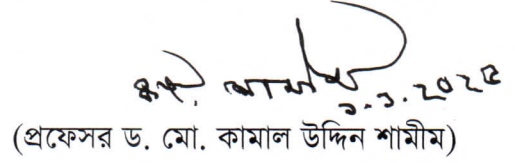 ৯.৩.২০২৫
(প্রফেসর ড. মো. কামাল উদ্দিন শামীম)